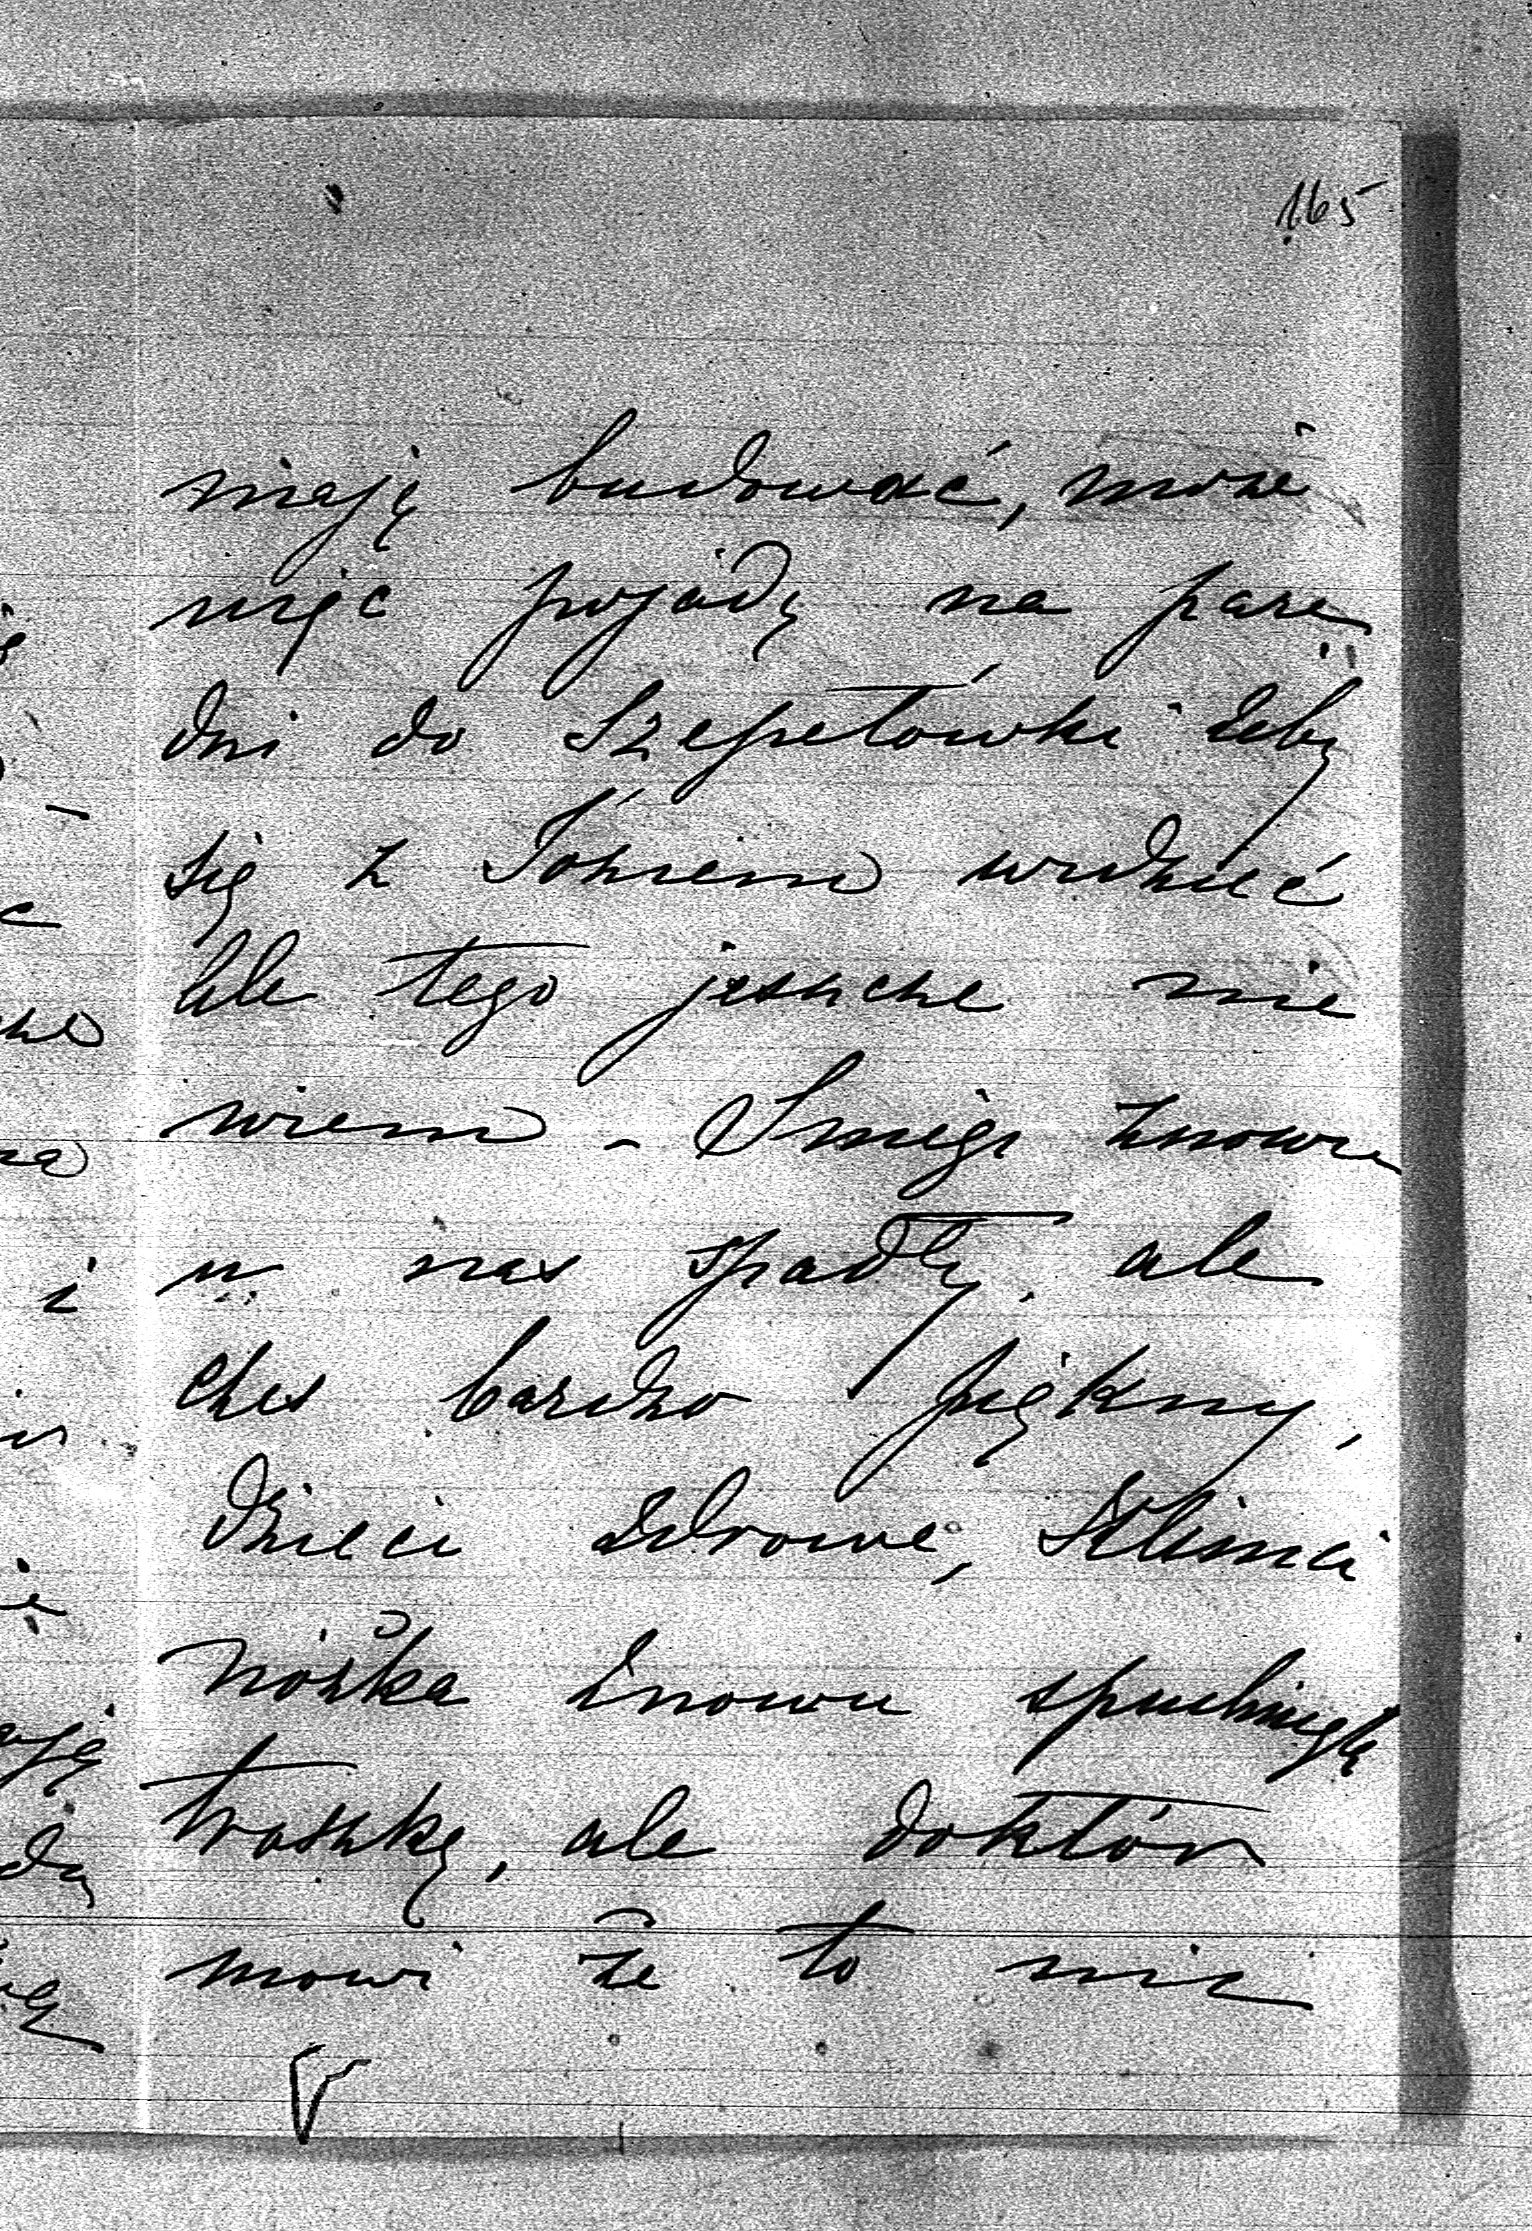 165
mają budować, może
więc pojadę na parę
dni do Szepetówki żeby
się z Józiem widzieć
ale tego jeszcze nie
wiem - Śniegi znowu
u nas spadły, ale
czas bardzo piękny,
dzieci zdrowe,
nóżka znowu spuchnięta
troszkę, ale doktór
mowi że to nic